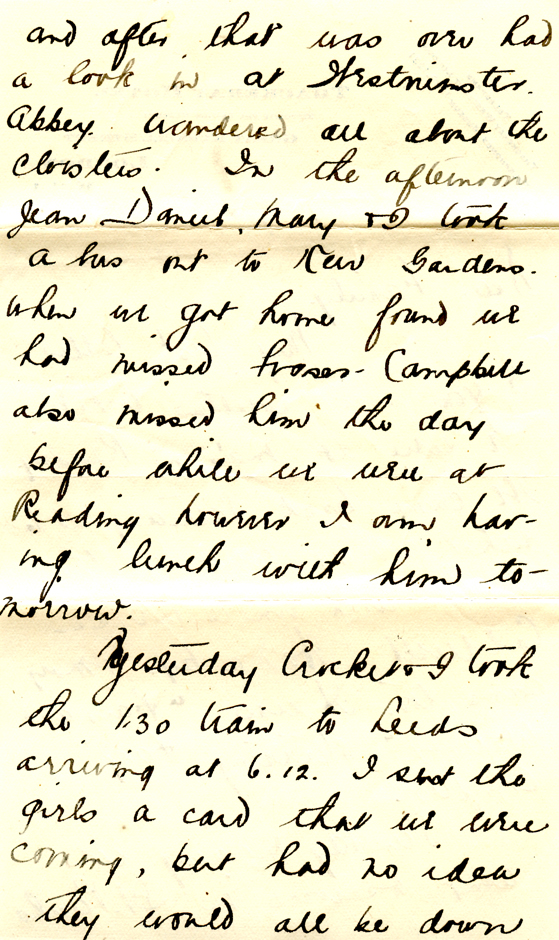 and after that was over had
a look in at Westminster.
Abbey. wandered all about the
cloisters. In the afternoon
Jean, Daniels, Mary & I took
a bus out to Kew Gardens.
when we got home found we
had missed Campbell
also missed him the day
before while we were at
Reading however I am hav-
ing lunch with him to-
morrow.
Yesterday Crocket & I took
the 1.30 train to Leeds
arriving at 6.12. I sent the
girls a card that we were
coming, but had no idea
they would all be down